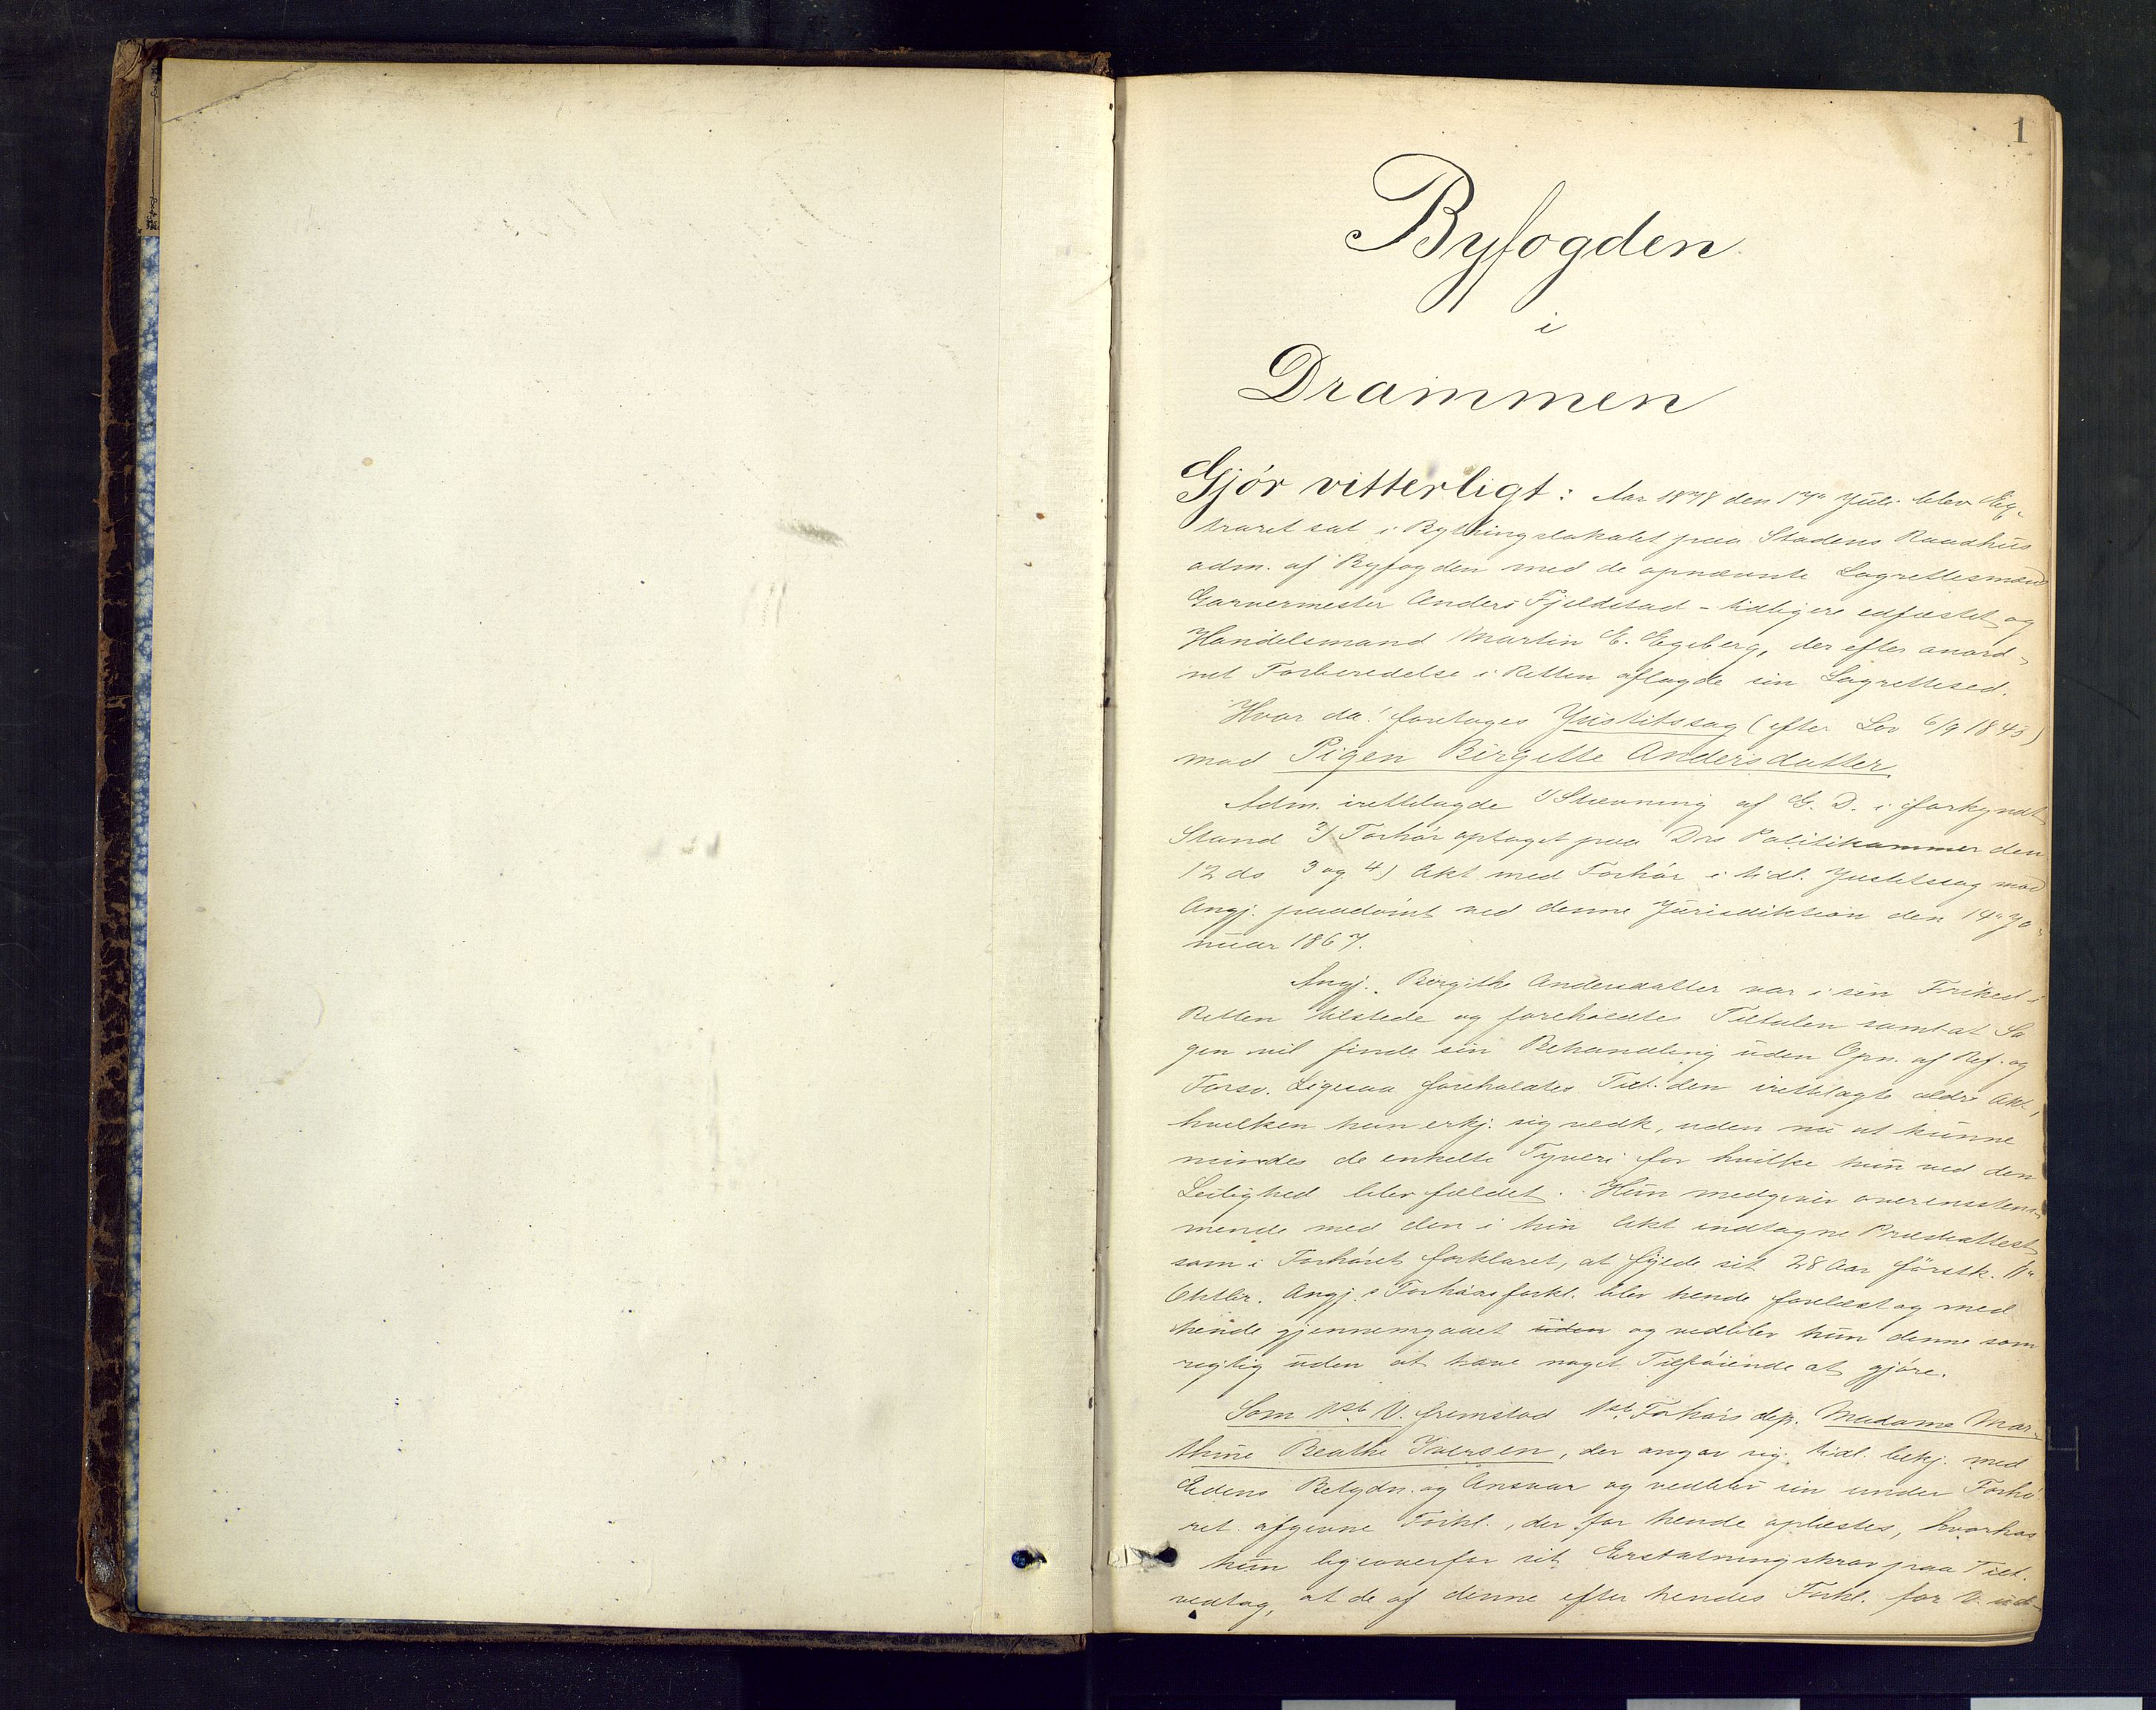 1
Byfogden
i
Drammen
Gjör vitterligt: Aar 1878 den 17de Juli blev Ex¬
traret sat i Bythingslokalet paa Stadens Raadhus
adm. af Byfogden med de opnævnte Lagrettesmænd
Garvermester Anders Fjeldstad - tidligere edfæstet og
Handelsmand Martin E. Egeberg, der efter anord¬
net Forberedelse i Retten aflagde sin Lagretteseed.
Hvor da! foretages Justitssag (efter Lov 6/9 1845)
mod Pigen Birgitte Andersdatter.
Adm. irettelagde 1/ Stævning af G. D. i forkyndt
Stand 2/ Forhör optaget paa Drs Politikammer den
12 ds 3 og 4) Akt med Forhör i tidl. Justitssag mod
Angj. paadömt ved denne Jurisdiktion den 14de Ja¬
nuar 1867.
Angj. Birgithe Andersdatter var i sin Frihed i
Retten tilstede og foreholdtes Tiltalen samt at Sa
gen vil finde sin Behandling uden Opn. af Ref. og
Forsv. Ligesaa foreholdtes Tilt. den irettelagte ældre Akt,
hvilken hun erkj. sig vedk, uden nu at kunne
mindes de enkelte Tyveri for hvilke hun ved den
Leilighed blev fældet. Hun medgiver overensstem¬
mende med den i hin Akt indtagne Presteattest
som i Forhöret forklaret, at fylde sit 28 Aar förstk. 11te
Oktbr. Angj.s Forhörsforkl. blev hende forelæst og med
hende gjennemgaaet uden og vedblev hun denne som
rigtig uden at have noget Tilföiende at gjöre.
Som 1ste V. fremstod 1ste Forhörs dep. Madame Mar¬
thine Beathe Iversen, der angav sig tidl. bekj. med
Edens Betydn. og Ansvar og vedblev sin under Forhö
ret afgivne Forkl., der for hende oplæstes, hvorhos
hun ligeoverfor sit Erstatningskrav paa Tilt.
vedtog, at de af denne efter hendes Forkl. for V. ud¬